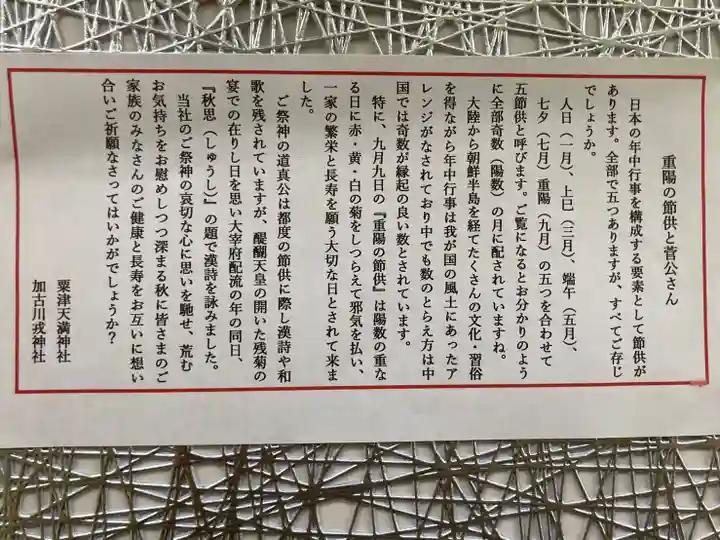 重陽の節供と菅公さん
日本の年中行事を構成する要素として節供が
あります。全部で五つありますが、すべてご存じ
でしょうか。
人日(一月)、上巳(三月)、端午(五月)、
七夕(七月)重陽(九月)の五つを合わせて
五節供と呼びます。ご覧になるとお分かりのよう
に全部奇数(陽数)の月に配されていますね。
大陸から朝鮮半島を経てたくさんの文化・習俗
を得ながら年中行事は我が国の風土にあったア
レンジがなされており中でも数のとらえ方は中
国では奇数が縁起の良い数とされています。
特に、九月九日の『重陽の節供』は陽数の重な
る日に赤・黄・白の菊をしつらえて邪気を払い、
一家の繁栄と長寿を願う大切な日とされて来ま
した。
ご祭神の道真公は都度の節供に際し漢詩や和
歌を残されていますが、醍醐天皇の開いた残菊の
宴での在りし日を思い大宰府配流の年の同日、
『秋思(しゅうし)』の題で漢詩を詠みました。
当社のご祭神の哀切な心に思いを馳せ、荒む
お気持ちをお慰めしつつ深まる秋に皆さまのご
家族のみなさんのご健康と長寿をお互いに想い
合いご祈願なさってはいかがでしょうか?
粟津天満神社
加古川戎神社